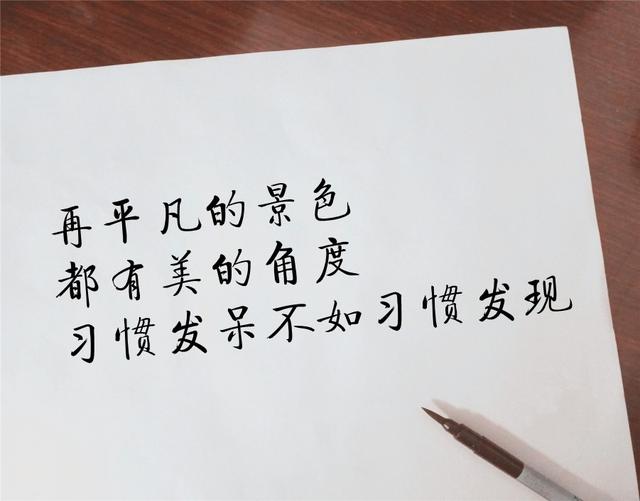 再平凡的景色
都有美的角度
习惯发呆不如习惯发现